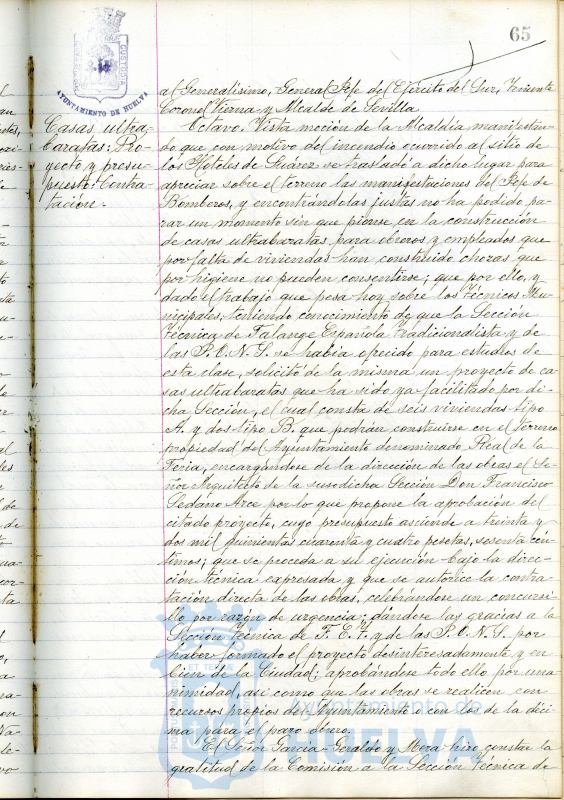 65
AYUNTAMIENTO DE HUELVA
al Generalisimo, General Jefe del Ejército del Sur, Teniente
Coronel Vierna y Alcalde de Sevilla
Casas ultra-
baratas: Pro-
yecto y presu-
puesto: Contra-
tación.
Octavo. Vista moción de la Alcaldía manifestan-
do que con motivo del incendio ocurrido al sitio de
los Hoteles de Suárez se trasladó a dicho lugar para
apreciar sobre el terreno las manifestaciones del Jefe de
Bomberos, y encontrándolas justas no ha podido pa-
rar un momento sin que piense en la construcción
de casas ultrabaratas para obreros y empleados que
por falta de viviendas han construido chozas que
por higiene no pueden consentirse; que por ello, y
dado el trabajo que pesa hoy sobre los Técnicos Mu-
nicipales, teniendo conocimiento de que la Sección
Técnica de Falange Española Tradicionalista y de
las J.O.N.S. se había ofrecido para estudios de
esta clase, solicitó de la misma un proyecto de ca-
sas ultrabaratas que ha sido ya facilitado por di-
cha Sección, el cual consta de seis viviendas tipo
A. y dos tipo B. que podrán construirse en el terreno
propiedad del Ayuntamiento denominado Real de la
Feria, encargándose de la dirección de las obras el Se-
ñor Arquitecto de la susodicha Sección Don Francisco
Sedano Arce por lo que propone la aprobación del
citado proyecto, cuyo presupuesto asciende a treinta y
dos mil quinientas cuarenta y cuatro pesetas, sesenta cén-
timos; que se proceda a su ejecución bajo la direc-
ción técnica expresada y que se autorice la contra-
tación directa de las obras, celebrándose un concursi-
llo por razón de urgencia; dándose las gracias a la
Sección Técnica de F.E.T. y de las J.O.N.S. por
haber formado el proyecto desinteresadamente y en
bien de la Ciudad; aprobándose todo ello por una-
nimidad, así como que las obras se realicen con
recursos propios del Ayuntamiento o con los de la déci-
ma para el paro obrero.
El Señor García-Geraldo y Mora hizo constar la
gratitud de la Comisión a la Sección Técnica de
Ayuntamiento de
HUELVA